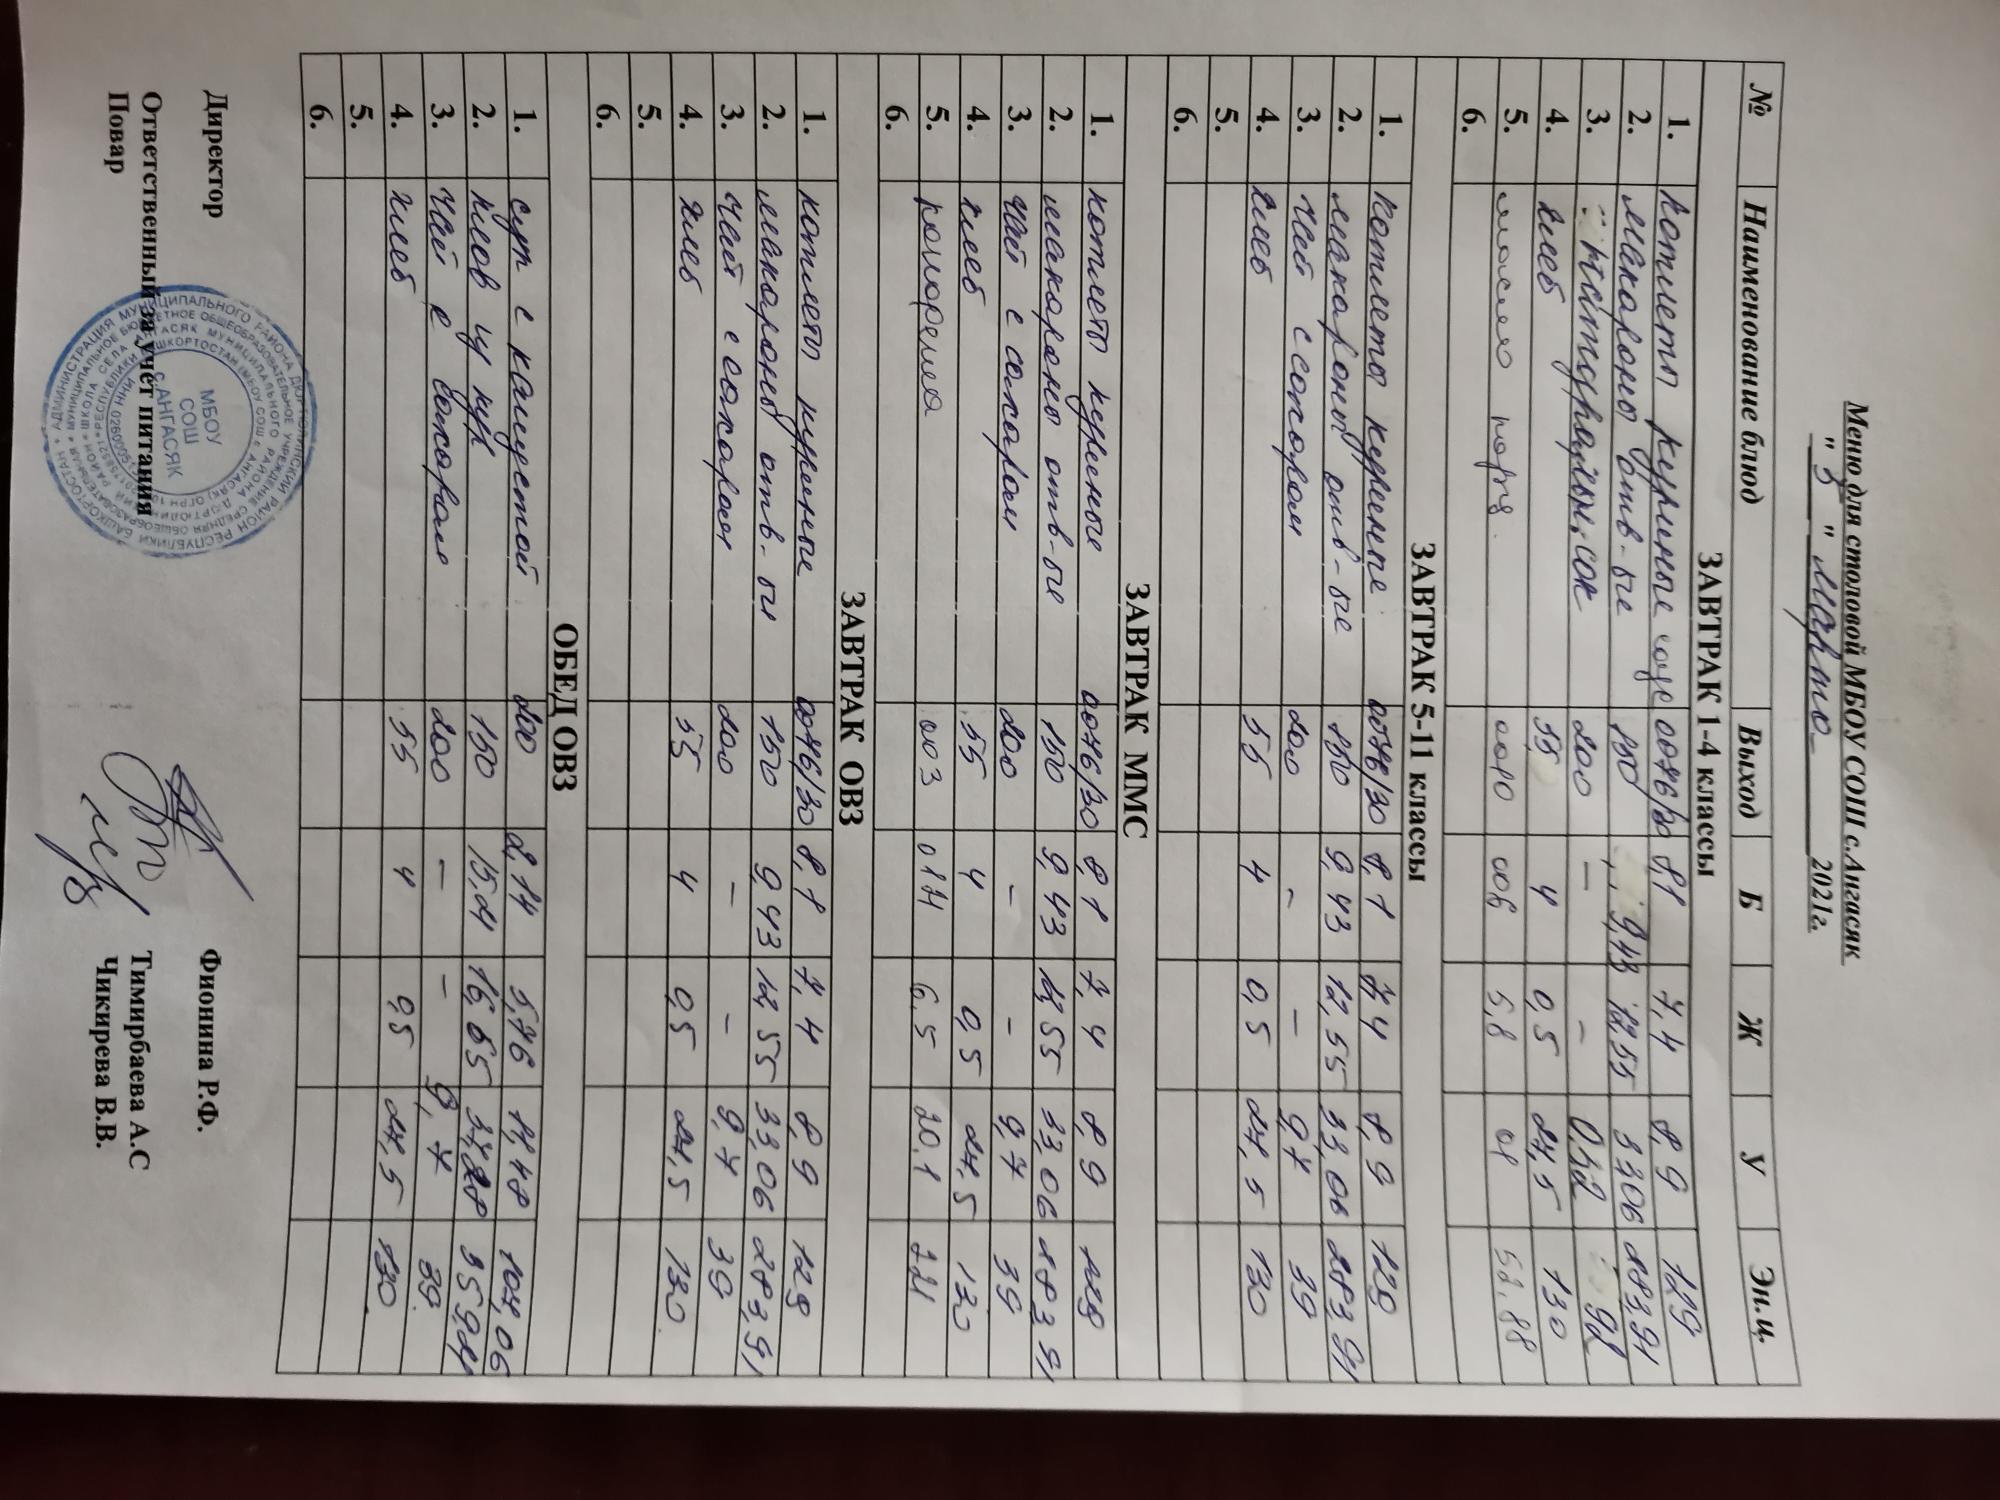 Меню для столовой МБОУ СОШ с.Ангасяк
" 3 " марта 2021г.
№ Наименование блюд Выход Б Ж У Эн.ц.
ЗАВТРАК 1-4 классы
1. котлеты куриные 0076/30 8,1 7,4 8,9 129
2. макароны отв-ые 150 9,43 12,55 33,06 283,91
3. Натуральн. сок 200 – – 92
4. хлеб 55 4 0,5 27,5 130
5. масло порц. 0010 008 5,8
6.
ЗАВТРАК 5-11 классы
1. Котлеты куриные 0076/30 8,1 7,4 8,9 129
2. макароны отв-ые 150 9,43 12,55 33,06 283,91
3. Чай с сахаром 200 – – 9,7 39
4. хлеб 55 4 0,5 27,5 130
5.
6.
ЗАВТРАК ММС
1. котлеты куриные 0076/30 8,1 7,4 8,9 129
2. макароны отв-ые 150 9,43 12,55 33,06 283,91
3. чай с сахаром 200 – – 9,7 39
4. хлеб 55 4 0,5 27,5 130
5. 003 6,5 20,1
6.
ЗАВТРАК ОВЗ
1. котлеты куриные 0076/30 8,1 7,4 8,9 129
2. макароны отв-ые 150 9,43 12,55 33,06 283,91
3. чай с сахаром 200 – – 9,7 39
4. хлеб 55 4 0,5 27,5 130
5.
6.
ОБЕД ОВЗ
1. суп с капустой 200 2,14 5,76 11,48 107,06
2. плов из кур 150 15,21 16,65
3. Чай с сахаром 200 – – 9,7 39
4. хлеб 55 4 0,5 27,5 130
5.
6.
Директор Фионина Р.Ф.
Ответственный за учёт питания Тимирбаева А.С
Повар Чикирева В.В.
МБОУ
СОШ
с.АНГАСЯК